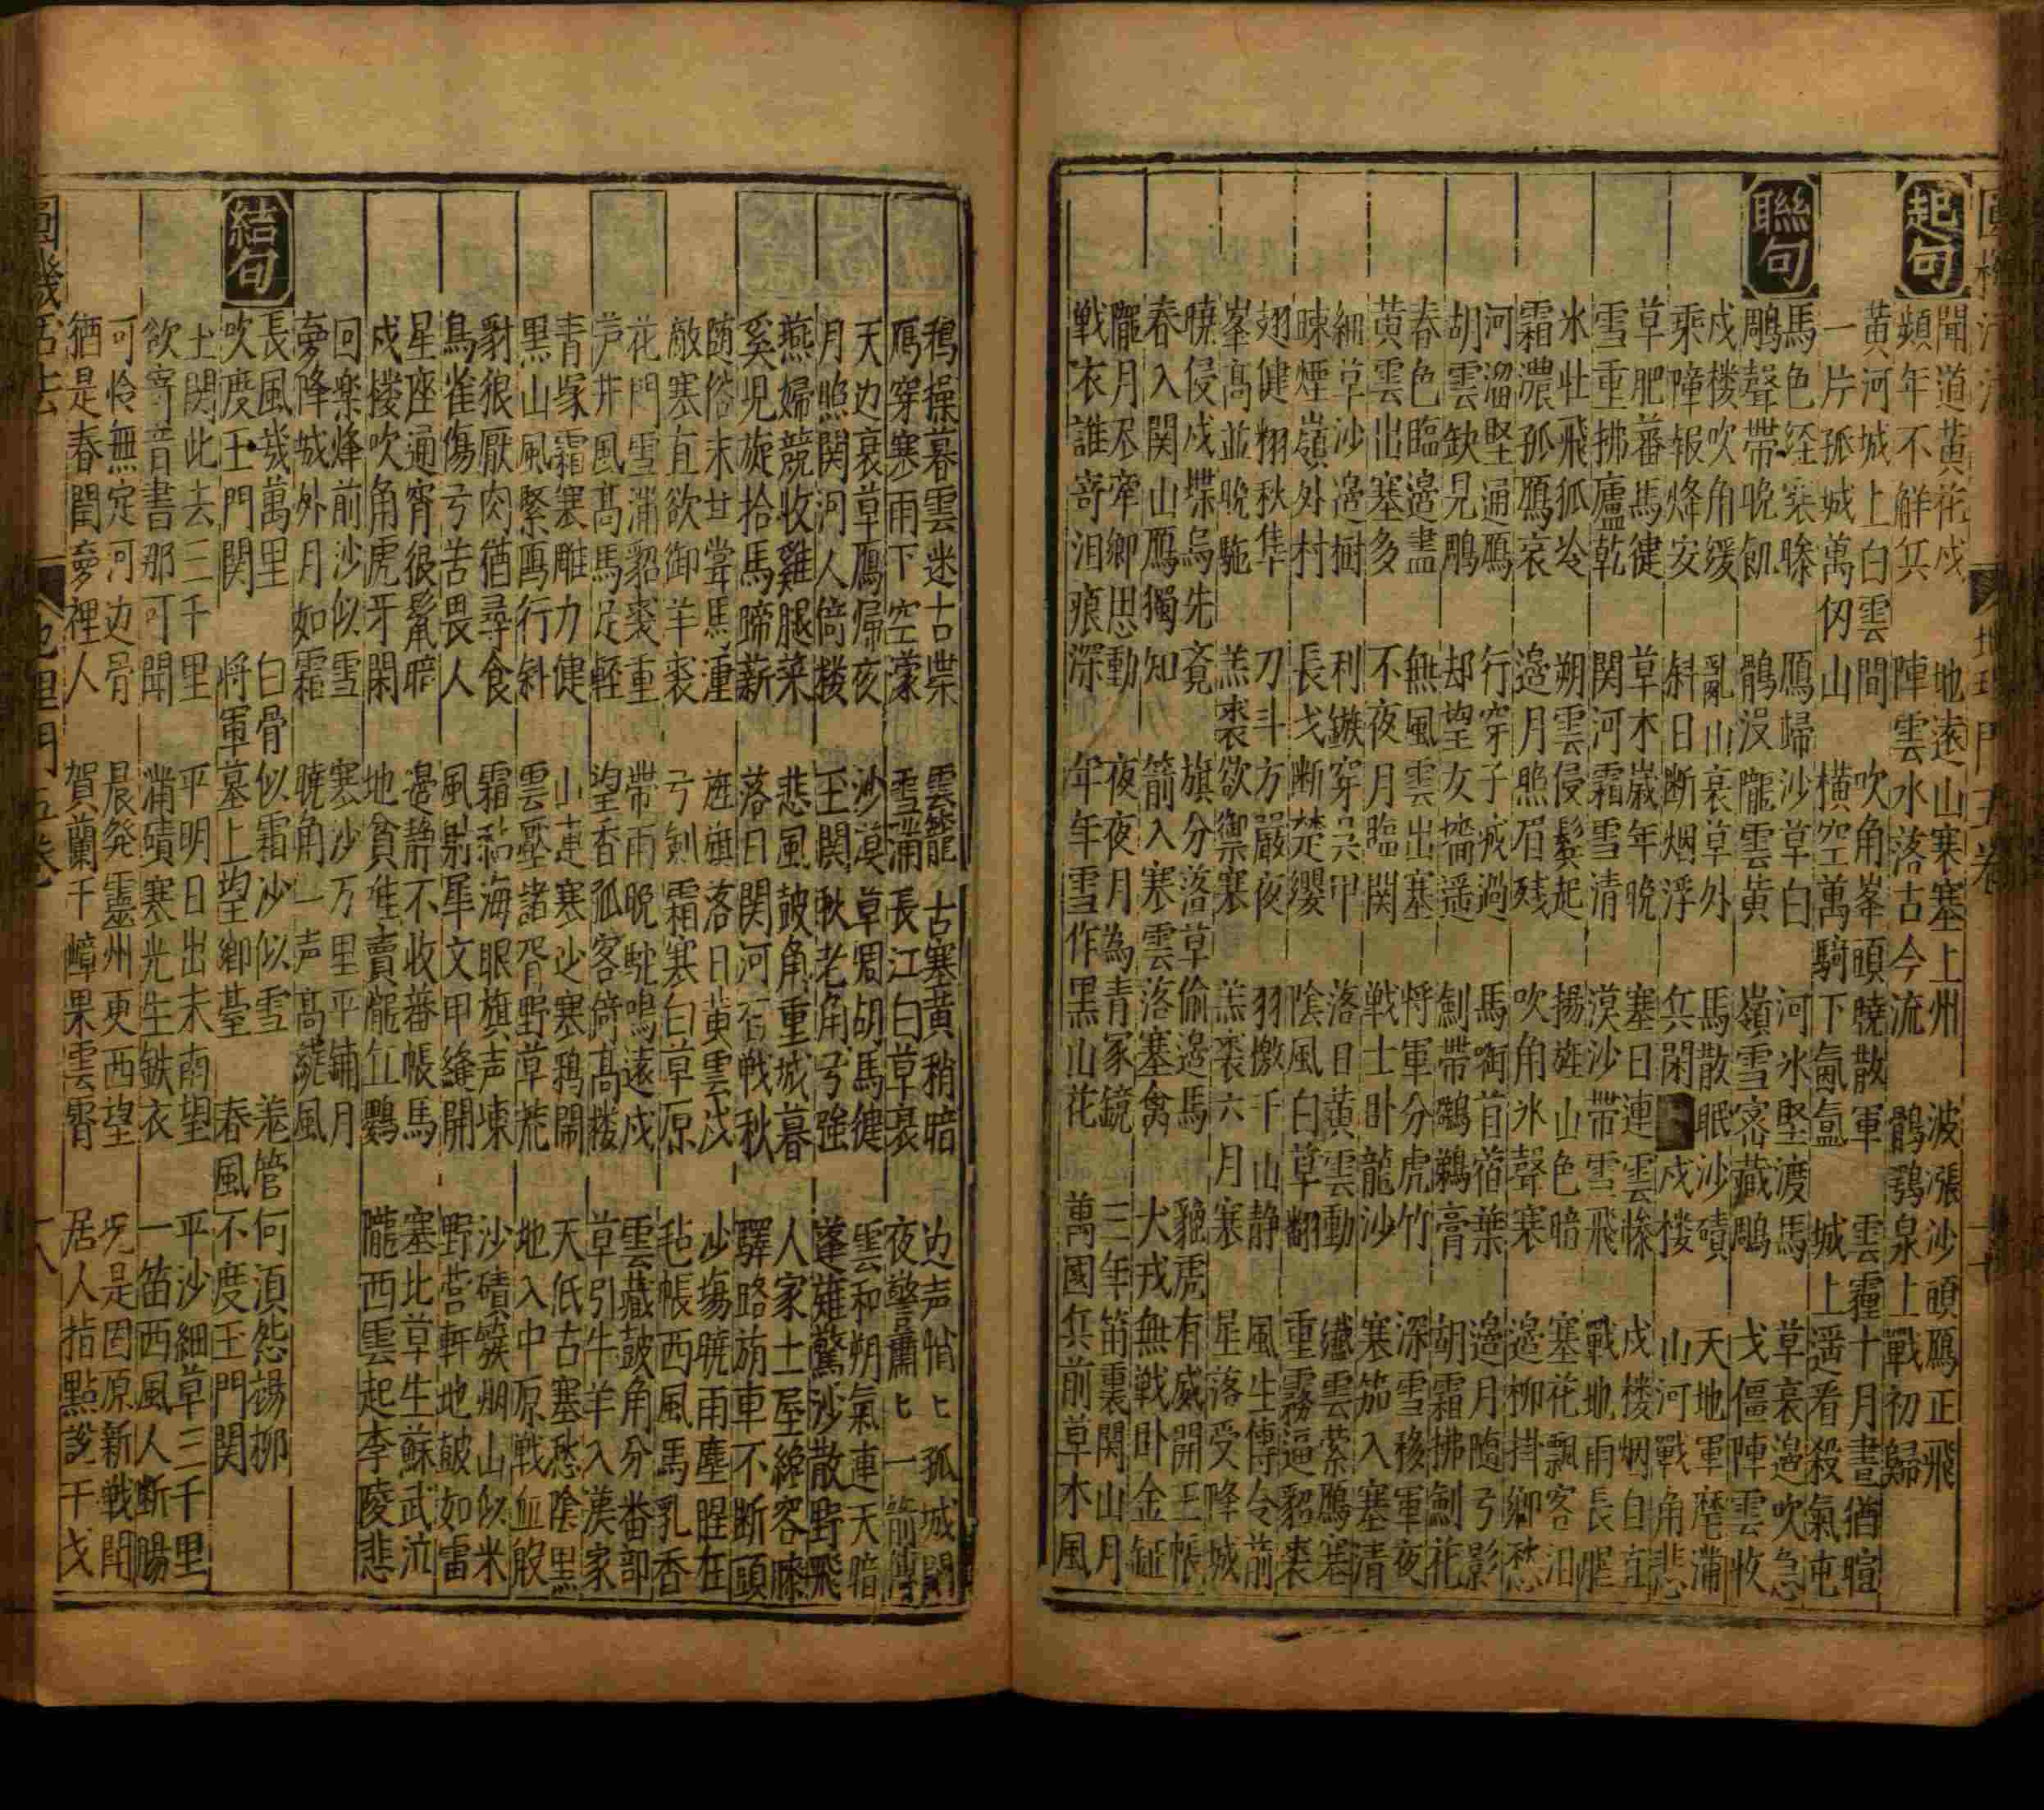 起句
聞道黄花戍　地遠山寒塞上州　波漲沙頭鴈正飛
頻年不觧兵　陣雲水落古今流　鶻鵶泉上戰初歸
黄河城上白雲間　吹角峯頭曉散軍　雲霾十月晝猶暄
一片孤城萬仞山　横空萬騎下氤氲　城上遥看殺氣屯
聯句
馬色経寒慘　鴈歸沙草白　河氷堅渡馬　草衰邉吹急
鵰聲帶晚飢　鶻没隴雲黄　嶺雪宻藏鵰　戈僵陣雲收
戍楼吹角缓　亂山衰草外　馬散眠沙磧　天地軍麾滿
乘障報烽安　斜日断烟浮　兵閑戍楼　山河戰角悲
草肥蕃馬徤　草木嵗年晚　塞日連雲慘　戍楼烟自直
雪重拂廬乾　関河霜雪清　漠沙帶雪飛　戰地雨長腥
氷壮飛狐冷　朔雲侵鬂起　揚旌山色暗　塞花飄客泪
霜濃孤鴈哀　邉月照眉残　吹角氷聲寒　邉柳掛鄉愁
河溜堅通鴈　行穿子戒過　馬銜苜蓿葉　邉月隨弓影
胡雲缺見鵰　却望女墻遥　劍帶鷿鵜膏　胡霜拂劍花
春色臨邉盡　無風雲出塞　将軍分虎竹　深雪移軍夜
黄雲出塞多　不夜月臨関　戦士卧龍沙　塞笳入塞清
細草沙邉樹　利鏃穿吴甲　落日黄雲動　纎雲縈鴈塞
暕煙嶺外村　長戈断楚纓　陰風白草翻　重霧逼貂裘
翅健翔秋隼　刀斗方嚴夜　羽檄千山静　風生傳令箭
峯髙並晚駞　羔裘欲禦寒　羔裘六月寒　星落受降城
曉侵戍堞烏先竟　旗分落草偷邉馬　貔虎有威開玉帳
春入関山鴈獨知　箭入寒雲落塞禽　犬戎無戦卧金鉦
隴月不牽鄉思動　夜夜月為青冢鏡　三年笛裏関山月
戦衣誰寄泪痕深　年年雪作黒山花　萬國兵前草木風
鴉操暮雲迷古堞　雲籠古塞黄稍暗　边声悄〻孤城閉
鴈穿寒雨下空濛　雪滿長江白草衰　夜警肅〻一箭傳
天边衰草鷹歸夜　沙漠草凋胡馬徤　雲和朔氣連天暗
月照関河人倚楼　王関秋老角弓强　蓬雜驚沙散野飛
燕婦競收雞腿菜　悲風皷角重城暮　人家土屋經客慘
奚児旋拾馬蹄薪　落日関河百戦秋　驛路旃車不断頭
随俗末甘甞馬湩　旌旗落日黄雲戍　沙塲曉雨塵腥在
敵塞直欲御羊裘　弓劍霜寒白草原　毡帳西風馬乳香
花門雪滿貂裘重　帶雨晚駝鳴遠戍　雲藏皷角分畨部
芦井風髙馬足輕　望香孤客倚髙楼　草引牛羊入漢家
青塚霜寒雕力健　山連塞沙寒鴉閙　天低古塞愁陰黒
黒山風緊鴈行斜　雲壓諸胥野草荒　地入中原戦血殷
豺狼厭肉猶尋食　霜粘海眼旗声凍　沙磧簇烟山似米
鳥雀傷弓苦畏人　風射犀文甲縫開　野営軒地皷如雷
星座通宵狼鬣暗　邉静不收蕃帳馬　塞北草生蘇武泣
戍楼吹角虎牙閑　地貧唯賣隴山鸚　隴西雲起李陵悲
回楽烽前沙似雪　寒沙万里平鋪月
夢降城外月如霜　曉角一声髙繞風
結句
長風幾萬里　白骨似霜沙似雪　羗管何須怨楊柳
吹度玉門関　将軍墓上望鄉臺　春風不度玉門関
土関此去三千里　平明日出未南望　平沙細草三千里
欲寄音書那可聞　滿磧寒光生鉄衣　一笛西風人断腸
可怜無定河边骨　晨発靈州更西望　況是因原新戦閗
猶是春閨夢裡人　賀蘭千嶂果雲霄　居人指點說干戈